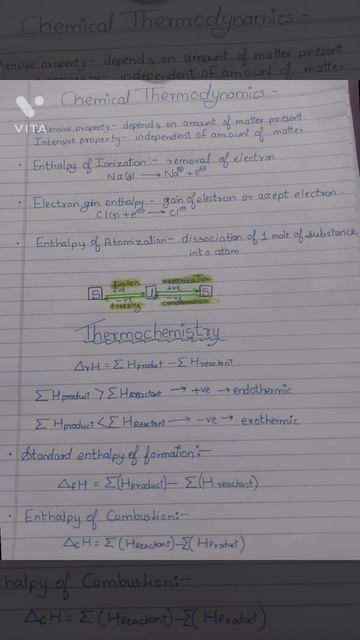 Chemical Thermodynamics:-
tensive property- depends on amount of matter present
independent of amount of matter
Chemical Thermodynamics:-
VITA
tensive property- depends on amount of matter present
Intensive property- independent of amount of matter
• Enthalpy of Ionization:- removal of electron
Na(g) → Na⊕ + e⊖
• Electron gain enthalpy- gain of electron or accept electron.
Cl(g) + e⊖ → Cl⊖
• Enthalpy of Atomization- dissociation of 1 mole of substance
into atom
fusion vaporization
+ve +ve
S L
-ve -ve
freezing condensation
Thermochemistry
ΔrH = ΣHproduct - ΣHreactant
ΣHproduct > ΣHReactant → +ve → endothermic
ΣHproduct < ΣHReactant → -ve → exothermic
• Standard enthalpy of formation:-
ΔfH = Σ(Hproduct) - Σ(Hreactant)
• Enthalpy of Combustion:-
ΔcH = Σ(HReactant) - Σ(HProduct)
thalpy of Combustion:-
ΔcH = Σ(HReactant) - Σ(HProduct)